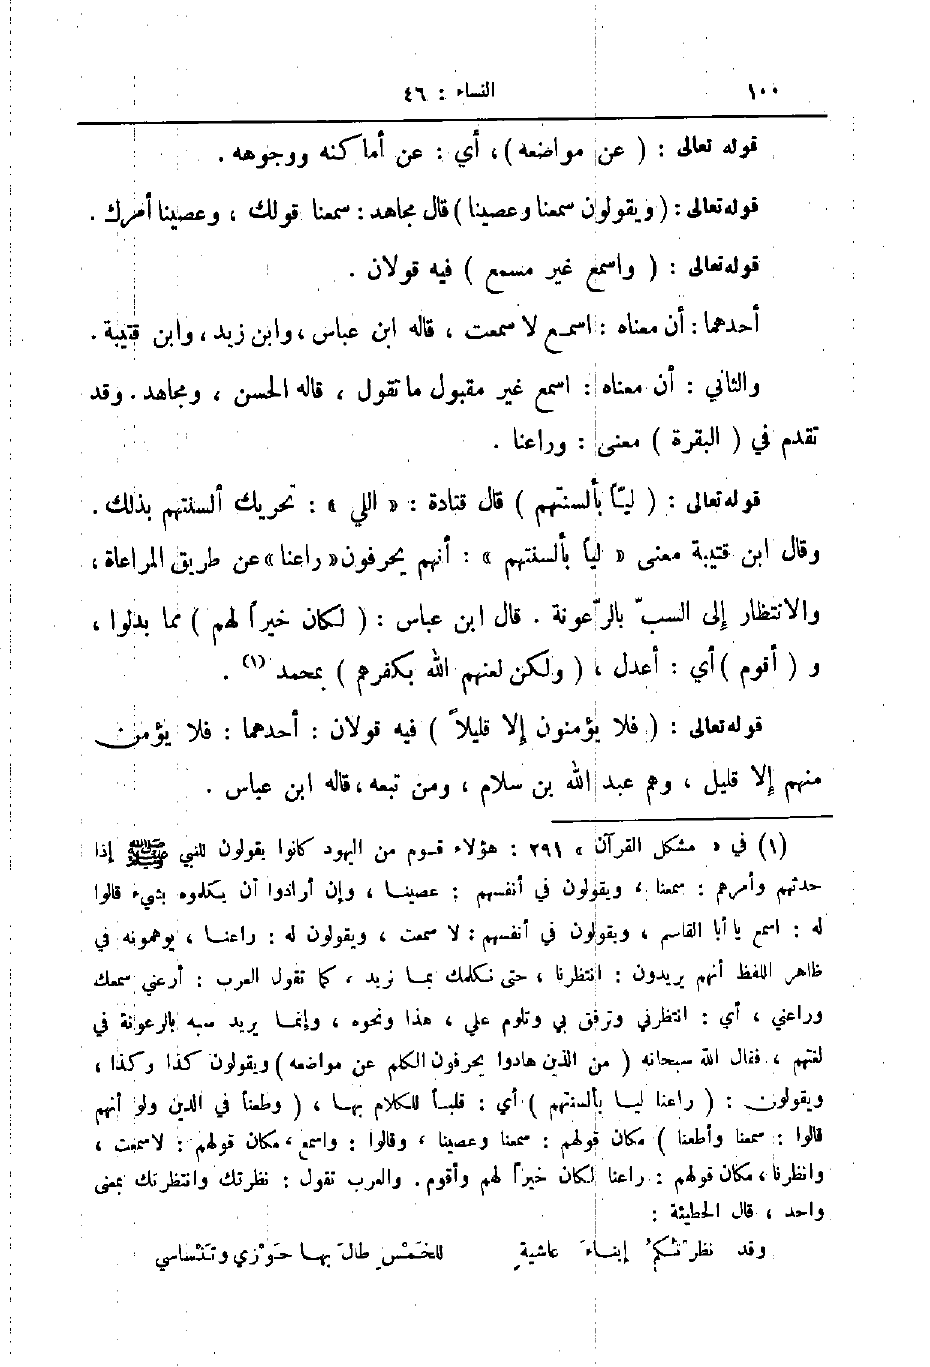 ١٠٠ النساء : ٤٦
قوله تعالى : ( عن مواضعه ) ، أي : عن أماكنه ووجوهه .
قوله تعالى : ( ويقولون سمعنا وعصينا ) قال مجاهد : سمعنا قولك ، وعصينا أمرك .
قوله تعالى : ( واسمع غير مسمع ) فيه قولان .
أحدهما : أن معناه : اسمع لا سمعت ، قاله ابن عباس ، وابن زيد ، وابن قتيبة .
والثاني : أن معناه : اسمع غير مقبول ما تقول ، قاله الحسن ، ومجاهد . وقد
تقدم في ( البقرة ) معنى : وراعنا .
قوله تعالى : ( ليّاً بألسنتهم ) قال قتادة : « اللي » : تحريك ألسنتهم بذلك .
وقال ابن قتيبة معنى « لياً بألسنتهم » : أنهم يحرفون « راعنا » عن طريق المراعاة ،
والانتظار إلى السبّ بالرّعونة . قال ابن عباس : ( لكان خيراً لهم ) مما بدلوا ،
و ( أقوم ) أي : أعدل ، ( ولكن لعنهم الله بكفرهم ) بمحمد (١) .
قوله تعالى : ( فلا يؤمنون إلا قليلاً ) فيه قولان : أحدهما : فلا يؤمن
منهم إلا قليل ، وهم عبد الله بن سلام ، ومن تبعه ، قاله ابن عباس .
(١) في « مشكل القرآن » ٢٩١ : هؤلاء قوم من اليهود كانوا يقولون للنبي ﷺ إذا
حدثهم وأمرهم : سمعنا ، ويقولون في أنفسهم : عصينا ، وإن أرادوا أن يكلموه بشيء قالوا
له : اسمع يا أبا القاسم ، ويقولون في أنفسهم : لا سمعت ، ويقولون له : راعنا ، يوهمونه في
ظاهر اللفظ أنهم يريدون : انتظرنا ، حتى نكلمك بما نريد ، كما تقول العرب : أرعني سمعك
وراعني ، أي : انتظرني وترفق بي وتلوم علي ، هذا ونحوه ، وإنما يريد سبه بالرعونة في
لغتهم ، فقال الله سبحانه ( من الذين هادوا يحرفون الكلم عن مواضعه ) ويقولون كذا وكذا ،
ويقولون : ( راعنا ليا بألسنتهم ) أي : قلباً للكلام بها ، ( وطعناً في الدين ولو أنهم
قالوا : سمعنا وأطعنا ) مكان قولهم : سمعنا وعصينا ، وقالوا : واسمع ، مكان قولهم : لا سمعت ،
وانظرنا ، مكان قولهم : راعنا لكان خيراً لهم وأقوم . والعرب تقول : نظرتك وانتظرتك بمعنى
واحد ، قال الحطيئة :
وقد نظرتُكمُ إيناءَ عاشيةٍ للخَمْسِ طالَ بها حَوْزي وتَنْساسي